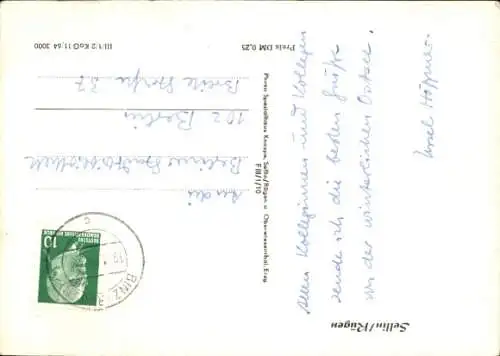 Sellin/Rügen
Allen Kolleginnen und Kollegen
sende ich die besten Grüße
von der winterlichen Ostsee.
Ursel Höppner
Photo Spezialhaus Knospe, Sellin/Rügen u. Oberwiesenthal/Erzg.
F III/1/10
Preis DM 0,25
III/1/2 KoG 11/64 3000
An die
Berliner Stadtbibliothek
102 Berlin
Breite Straße 37
10
DEUTSCHE
DEMOKRATISCHE REPUBLIK
BINZ
c